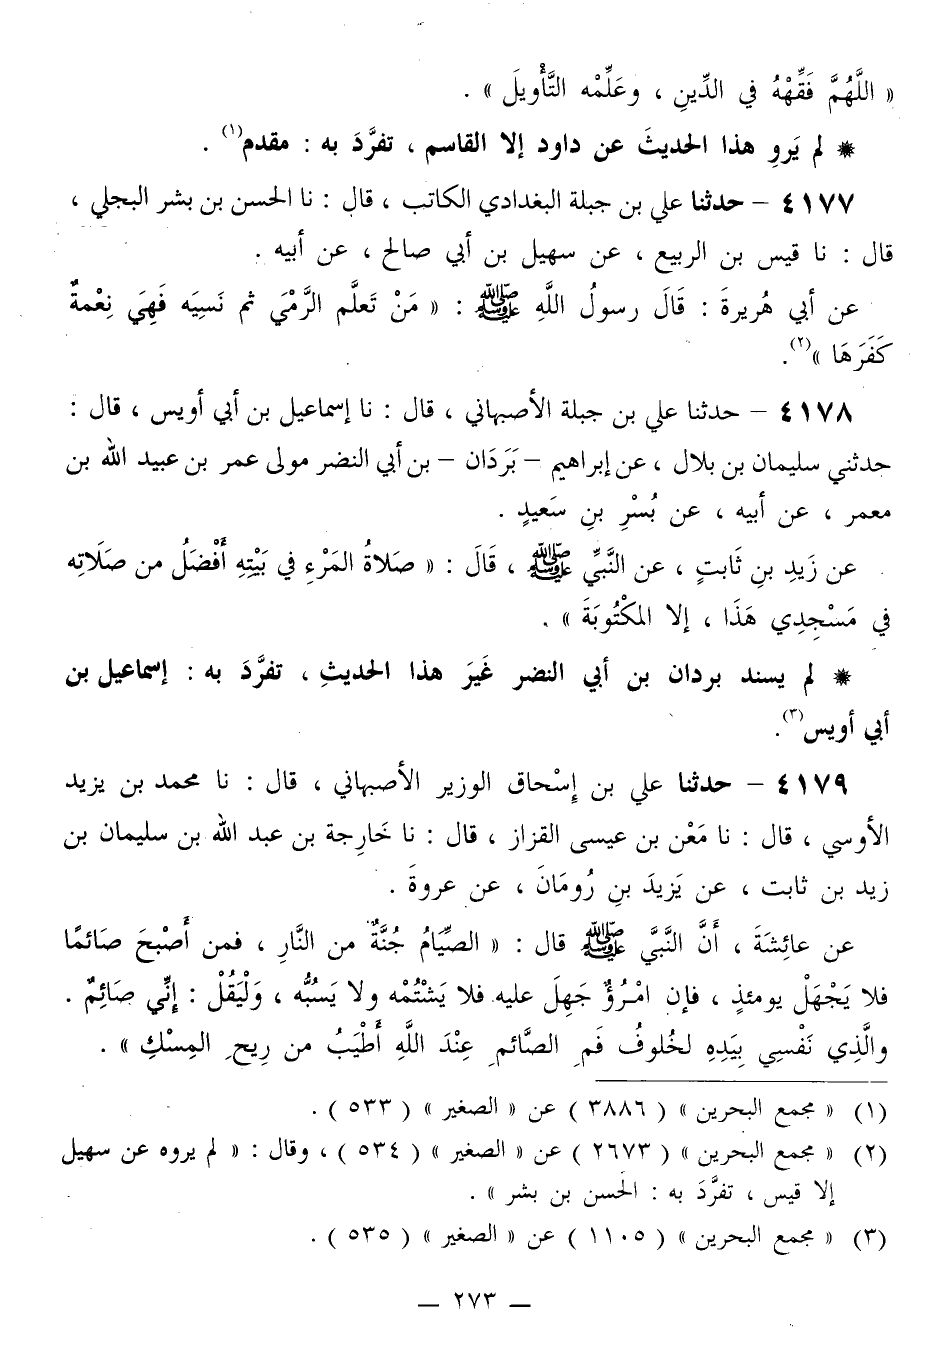 « اللَّهُمَّ فَقِّهْهُ في الدِّينِ ، وعَلِّمْه التَّأْويلَ » .
* لم يَروِ هذا الحديثَ عن داود إلا القاسم ، تفرَّدَ به : مقدم(١) .
٤١٧٧ – حدثنا علي بن جبلة البغدادي الكاتب ، قال : نا الحسن بن بشر البجلي ،
قال : نا قيس بن الربيع ، عن سهيل بن أبي صالح ، عن أبيه .
عن أبي هُريرةَ : قَالَ رسولُ اللَّهِ ﷺ : « مَنْ تَعلَّم الرَّمْيَ ثم نَسِيَه فَهِيَ نِعْمةٌ
كَفَرَهَا »(٢).
٤١٧٨ – حدثنا علي بن جبلة الأصبهاني ، قال : نا إسماعيل بن أبي أويس ، قال :
حدثني سليمان بن بلال ، عن إبراهيم – بَرَدَان – بن أبي النضر مولى عمر بن عبيد الله بن
معمر ، عن أبيه ، عن بُسْرِ بنِ سَعيدٍ .
عن زَيدِ بنِ ثَابتٍ ، عن النَّبيِّ ﷺ ، قَالَ : « صَلاةُ المَرْءِ في بَيْتِهِ أَفْضَلُ من صَلَاتِه
في مَسْجِدِي هَذَا ، إلا المَكْتُوبَةَ » .
* لم يسند بردان بن أبي النضر غَيرَ هذا الحديثِ ، تفرَّدَ به : إسماعيل بن
أبي أويس(٣).
٤١٧٩ – حدثنا علي بن إِسْحاق الوزير الأصبهاني ، قال : نا محمد بن يزيد
الأوسي ، قال : نا مَعْن بن عيسى القزاز ، قال : نا خَارِجة بن عبد الله بن سليمان بن
زيد بن ثابت ، عن يَزيدَ بنِ رُومَانَ ، عن عروةَ .
عن عائِشَةَ ، أَنَّ النَّبيَّ ﷺ قال : « الصِّيَامُ جُنَّةٌ من النَّارِ ، فمن أَصْبحَ صَائمًا
فلا يَجْهَلْ يومئذٍ ، فإن امْرُؤٌ جَهِلَ عليه فلا يَشْتُمْه ولا يَسُبُّه ، وَلْيَقُلْ : إِنِّي صَائِمٌ .
والَّذِي نَفْسِي بِيَدِهِ لخُلوفُ فَمِ الصَّائمِ عِنْدَ اللَّهِ أَطْيَبُ من رِيحِ المِسْكِ » .
(١) « مجمع البحرين » ( ٣٨٨٦ ) عن « الصغير » ( ٥٣٣ ) .
(٢) « مجمع البحرين » ( ٢٦٧٣ ) عن « الصغير » ( ٥٣٤ ) ، وقال : « لم يروه عن سهيل
إلا قيس ، تفرَّدَ به : الحسن بن بشر » .
(٣) « مجمع البحرين » ( ١١٠٥ ) عن « الصغير » ( ٥٣٥ ) .
– ٢٧٣ –